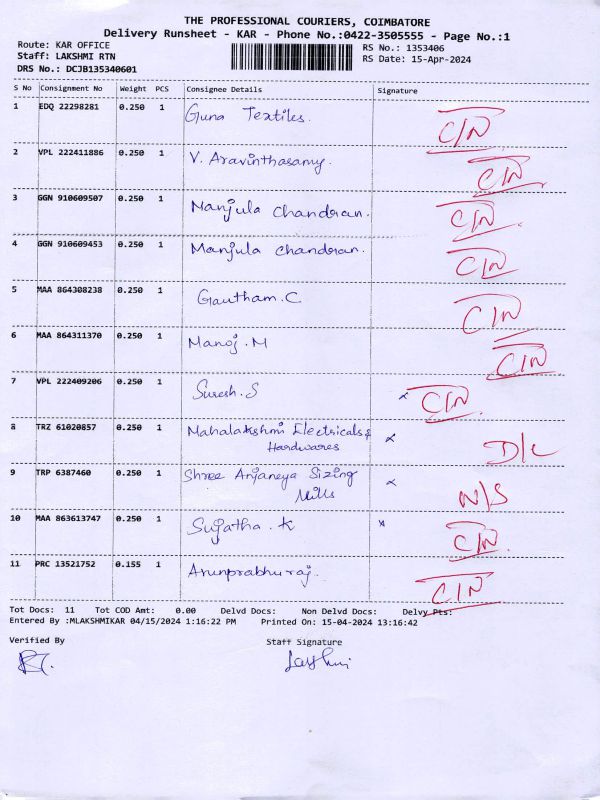 THE PROFESSIONAL COURIERS, COIMBATORE
Delivery Runsheet - KAR - Phone No.:0422-3505555 - Page No.:1
Route: KAR OFFICE
Staff: LAKSHMI RTN
DRS No.: DCJB135340601
RS No.: 1353406
RS Date: 15-Apr-2024
S No Consignment No Weight PCS Consignee Details Signature
1 EDQ 22298281 0.250 1 Guna Textiles. C/N
2 VPL 222411886 0.250 1 V. Aravinthasamy. C/N
3 GGN 910609507 0.250 1 Manjula Chandran. C/N
4 GGN 910609453 0.250 1 Manjula Chandran. C/N
5 MAA 864308238 0.250 1 Gautham. C C/N
6 MAA 864311370 0.250 1 Manoj. M C/N
7 VPL 222409206 0.250 1 Suresh. S x C/N.
8 TRZ 61020857 0.250 1 Mahalakshmi Electricals & x D/L
Hardwares
9 TRP 6387460 0.250 1 Shree Anjaneya Sizing x N/S
Mills
10 MAA 863613747 0.250 1 Sujatha. K x C/N.
11 PRC 13521752 0.155 1 Arunprabhuraj. C/N
Tot Docs: 11 Tot COD Amt: 0.00 Delvd Docs: Non Delvd Docs: Delvy Pts:
Entered By :MLAKSHMIKAR 04/15/2024 1:16:22 PM Printed On: 15-04-2024 13:16:42
Verified By Staff Signature